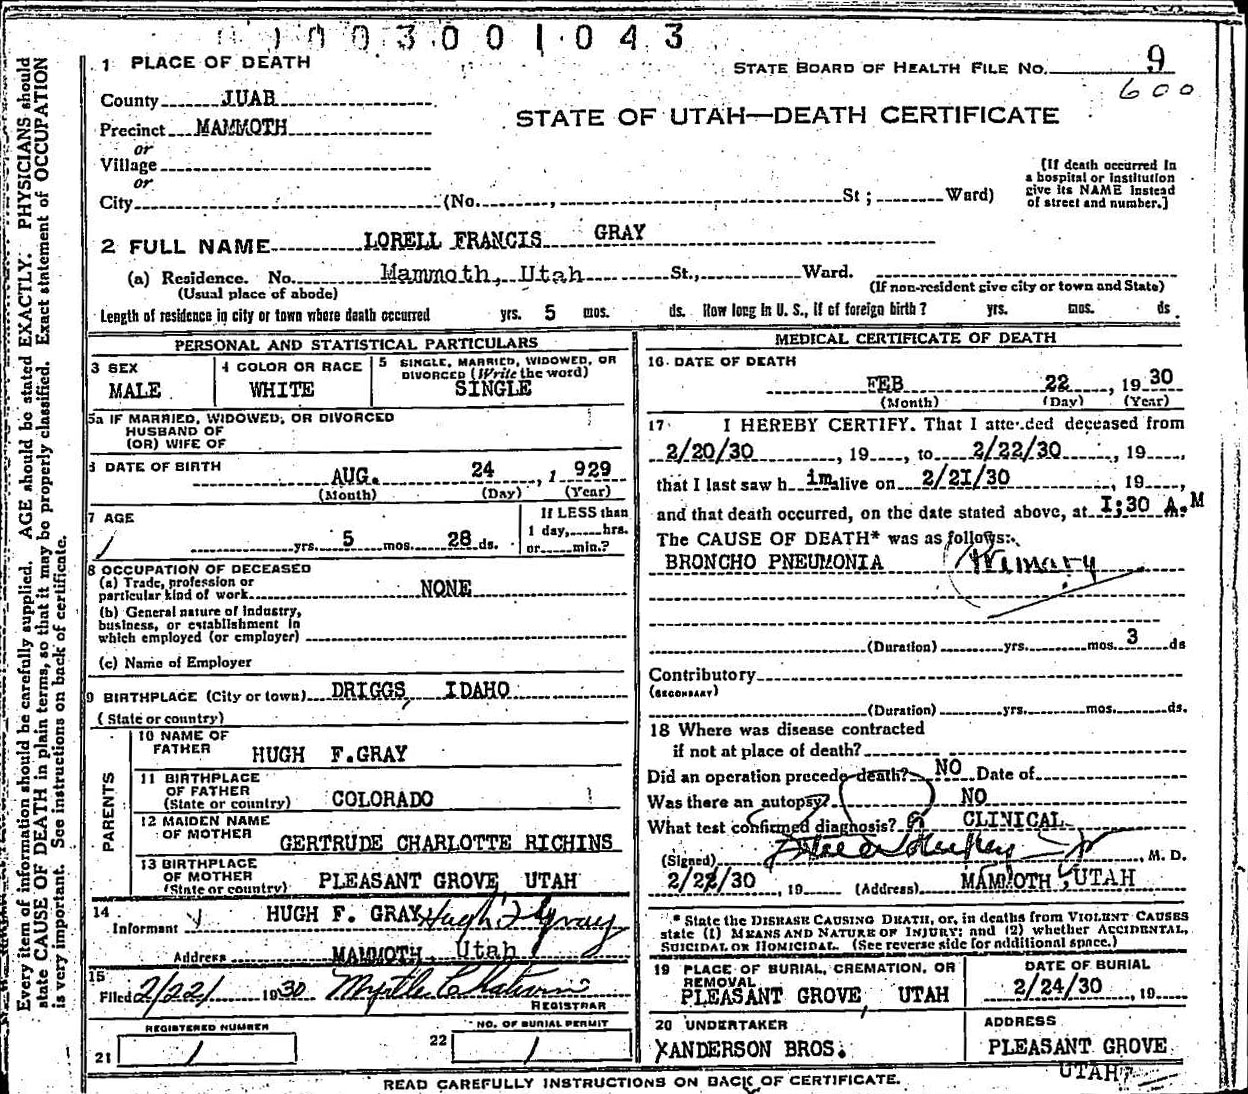 003001043
1 PLACE OF DEATH
STATE BOARD OF HEALTH FILE NO. 9
600
County JUAB
STATE OF UTAH—DEATH CERTIFICATE
Precinct MAMMOTH
or
Village
or
City (No. , St ; Ward)
(If death occurred in
a hospital or institution
give its NAME instead
of street and number.]
2 FULL NAME LORELL FRANCIS GRAY
(a) Residence. No. Mammoth, Utah St., Ward.
(Usual place of abode)
(If non-resident give city or town and State)
Length of residence in city or town where death occurred yrs. 5 mos. ds. How long in U. S., if of foreign birth? yrs. mos. ds.
PERSONAL AND STATISTICAL PARTICULARS
3 SEX
MALE
4 COLOR OR RACE
WHITE
5 SINGLE, MARRIED, WIDOWED, OR
DIVORCED (Write the word)
SINGLE
5a IF MARRIED, WIDOWED, OR DIVORCED
HUSBAND OF
(OR) WIFE OF
6 DATE OF BIRTH
AUG. 24 , 1 929
(Month) (Day) (Year)
7 AGE
yrs. 5 mos. 28 ds.
If LESS than
1 day, hrs.
or min.?
8 OCCUPATION OF DECEASED
(a) Trade, profession or
particular kind of work NONE
(b) General nature of industry,
business, or establishment in
which employed (or employer)
(c) Name of Employer
9 BIRTHPLACE (City or town) DRIGGS, IDAHO
(State or country)
PARENTS
10 NAME OF
FATHER HUGH F.GRAY
11 BIRTHPLACE
OF FATHER
(State or country) COLORADO
12 MAIDEN NAME
OF MOTHER GERTRUDE CHARLOTTE RICHINS
13 BIRTHPLACE
OF MOTHER
(State or country) PLEASANT GROVE, UTAH
14
Informant HUGH F. GRAY Hugh F Gray
Address MAMMOTH, Utah
15
Filed 2/22/ 1930 Myrtle
REGISTRAR
REGISTERED NUMBER
21 1
NO. OF BURIAL PERMIT
22 1
MEDICAL CERTIFICATE OF DEATH
16 DATE OF DEATH
FEB 22 , 19 30
(Month) (Day) (Year)
17 I HEREBY CERTIFY. That I attended deceased from
2/20/30 , 19 , to 2/22/30 , 19 ,
that I last saw h im alive on 2/2I/30 , 19 ,
and that death occurred, on the date stated above, at I:30 A.M
The CAUSE OF DEATH* was as follows:
BRONCHO PNEUMONIA (Primary
(Duration) yrs. mos. 3 ds
Contributory
(SECONDARY)
(Duration) yrs. mos. ds.
18 Where was disease contracted
if not at place of death?
Did an operation precede death? NO Date of
Was there an autopsy? NO
What test confirmed diagnosis? CLINICAL
(Signed) , M. D.
2/22/30 , 19 (Address) MAMMOTH, UTAH
* State the DISEASE CAUSING DEATH, or, in deaths from VIOLENT CAUSES
state (1) MEANS AND NATURE OF INJURY; and (2) whether ACCIDENTAL,
SUICIDAL OR HOMICIDAL. (See reverse side for additional space.)
19 PLACE OF BURIAL, CREMATION, OR
REMOVAL
PLEASANT GROVE, UTAH
DATE OF BURIAL
2/24/30 , 19
20 UNDERTAKER
ANDERSON BROS.
ADDRESS
PLEASANT GROVE
UTAH
READ CAREFULLY INSTRUCTIONS ON BACK OF CERTIFICATE.
Every item of information should be carefully supplied. AGE should be stated EXACTLY. PHYSICIANS should
state CAUSE OF DEATH in plain terms, so that it may be properly classified. Exact statement of OCCUPATION
is very important. See instructions on back of certificate.